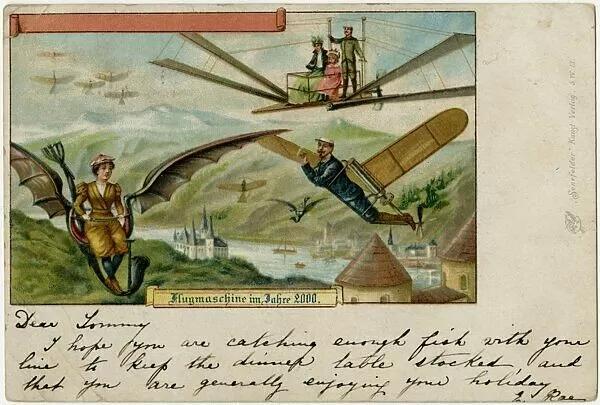 Flugmaschine im Jahre 2000.
Dear Tommy
I hope you are catching enough fish with your
line to keep the dinner table stocked and
that you are generally enjoying your holiday
Rae
Kunst Verlag, S.W.